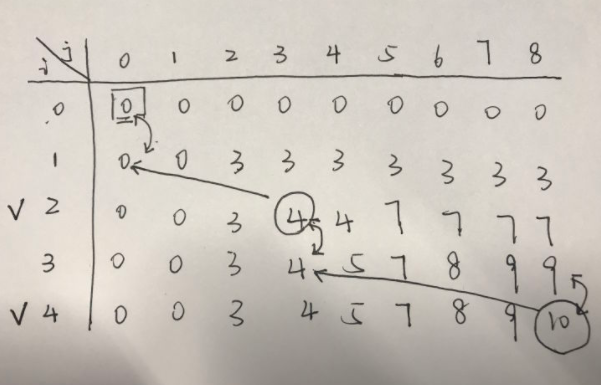 i j 0 1 2 3 4 5 6 7 8
0 0 0 0 0 0 0 0 0 0
1 0 0 3 3 3 3 3 3 3
√ 2 0 0 3 4 4 7 7 7 7
3 0 0 3 4 5 7 8 9 9
√ 4 0 0 3 4 5 7 8 9 10